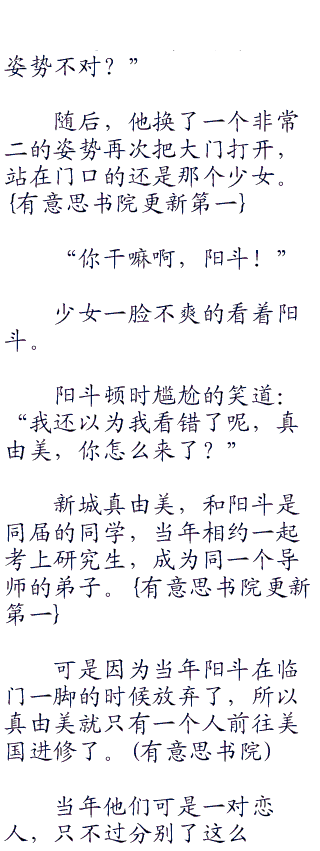 姿势不对？”
随后，他换了一个非常
二的姿势再次把大门打开，
站在门口的还是那个少女。
{有意思书院更新第一}
“你干嘛啊，阳斗！”
少女一脸不爽的看着阳
斗。
阳斗顿时尴尬的笑道：
“我还以为我看错了呢，真
由美，你怎么来了？”
新城真由美，和阳斗是
同届的同学，当年相约一起
考上研究生，成为同一个导
师的弟子。{有意思书院更新
第一}
可是因为当年阳斗在临
门一脚的时候放弃了，所以
真由美就只有一个人前往美
国进修了。(有意思书院)
当年他们可是一对恋
人，只不过分别了这么